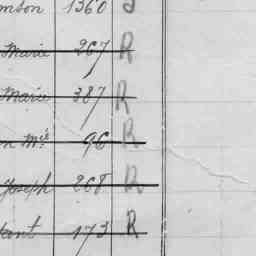 mson 1360
Marie 267 R
Marie 387 R
n Mie 96 R
Joseph 268 R
tant 173 R